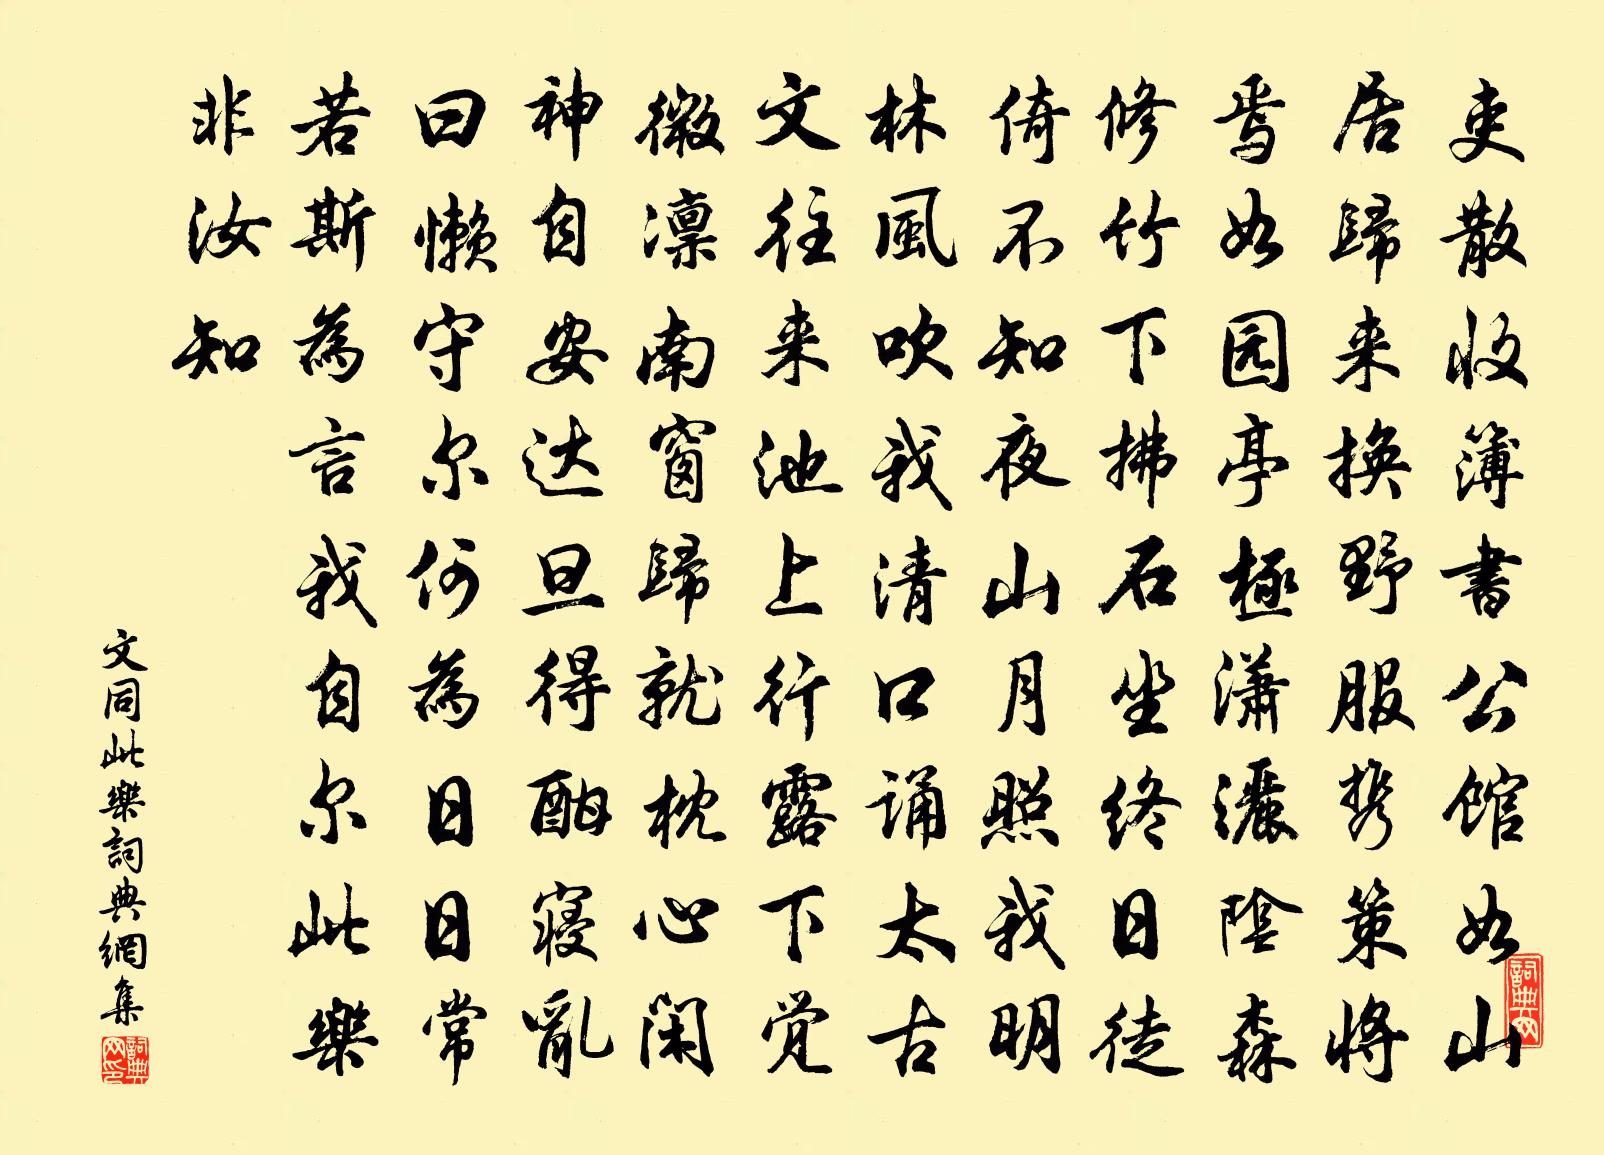 吏散收簿書公馆如山
居歸来换野服携策将
焉如园亭極潇灑陰森
修竹下拂石坐终日徒
倚不知夜山月照我明
林風吹我清口诵太古
文往来池上行露下觉
微凛南窗歸就枕心闲
神自安达旦得酣寝亂
曰懒守尔何為日日常
若斯為言我自尔此樂
非汝知
文同此樂詞典網集
詞典网